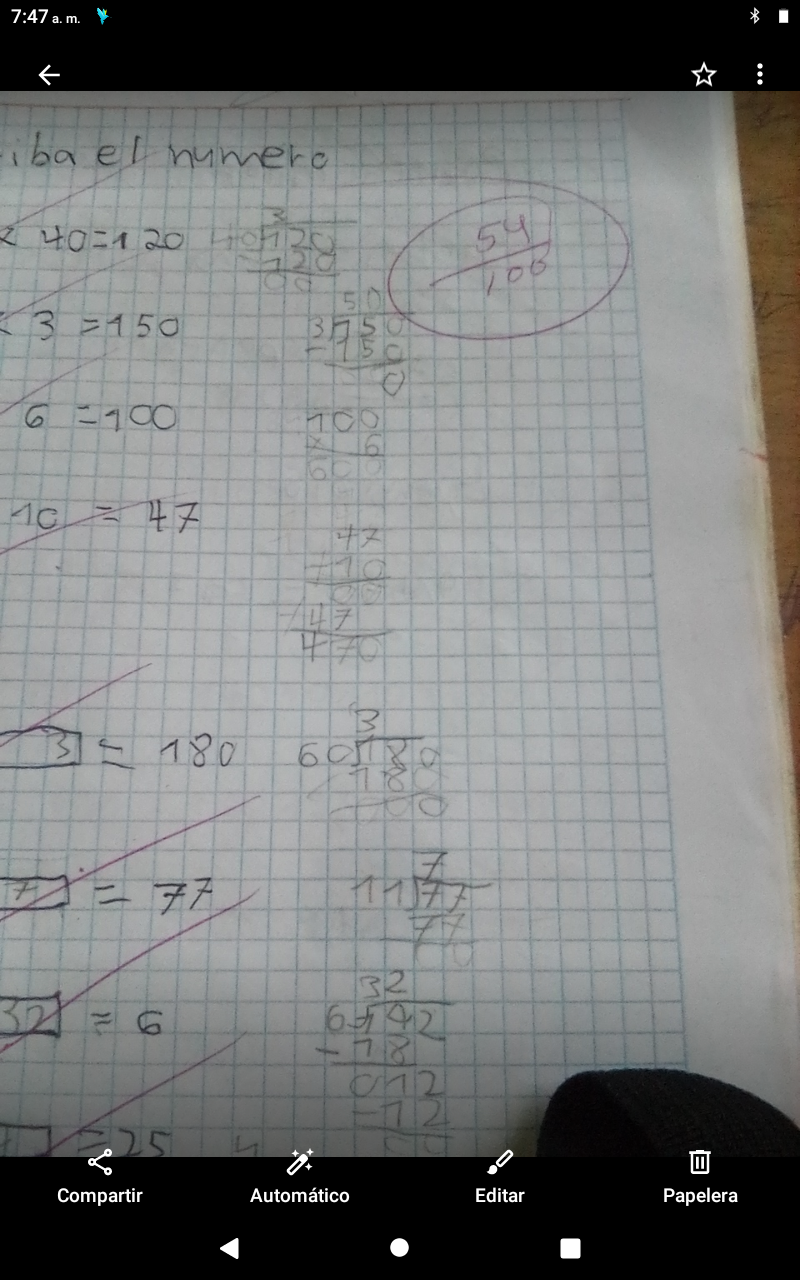 7:47 a. m.
iba el numero
x 40=120
3
40 120
- 120
00
54
100
x 3 =150
50
3 150
- 150
0
6 =100
100
x 6
600
10 = 47
47
x10
00
+47
470
3 = 180
3
60 180
180
000
7 = 77
7
11 77
77
0
32 = 6
32
6 192
- 18
012
-12
00
=25
Compartir
Automático
Editar
Papelera